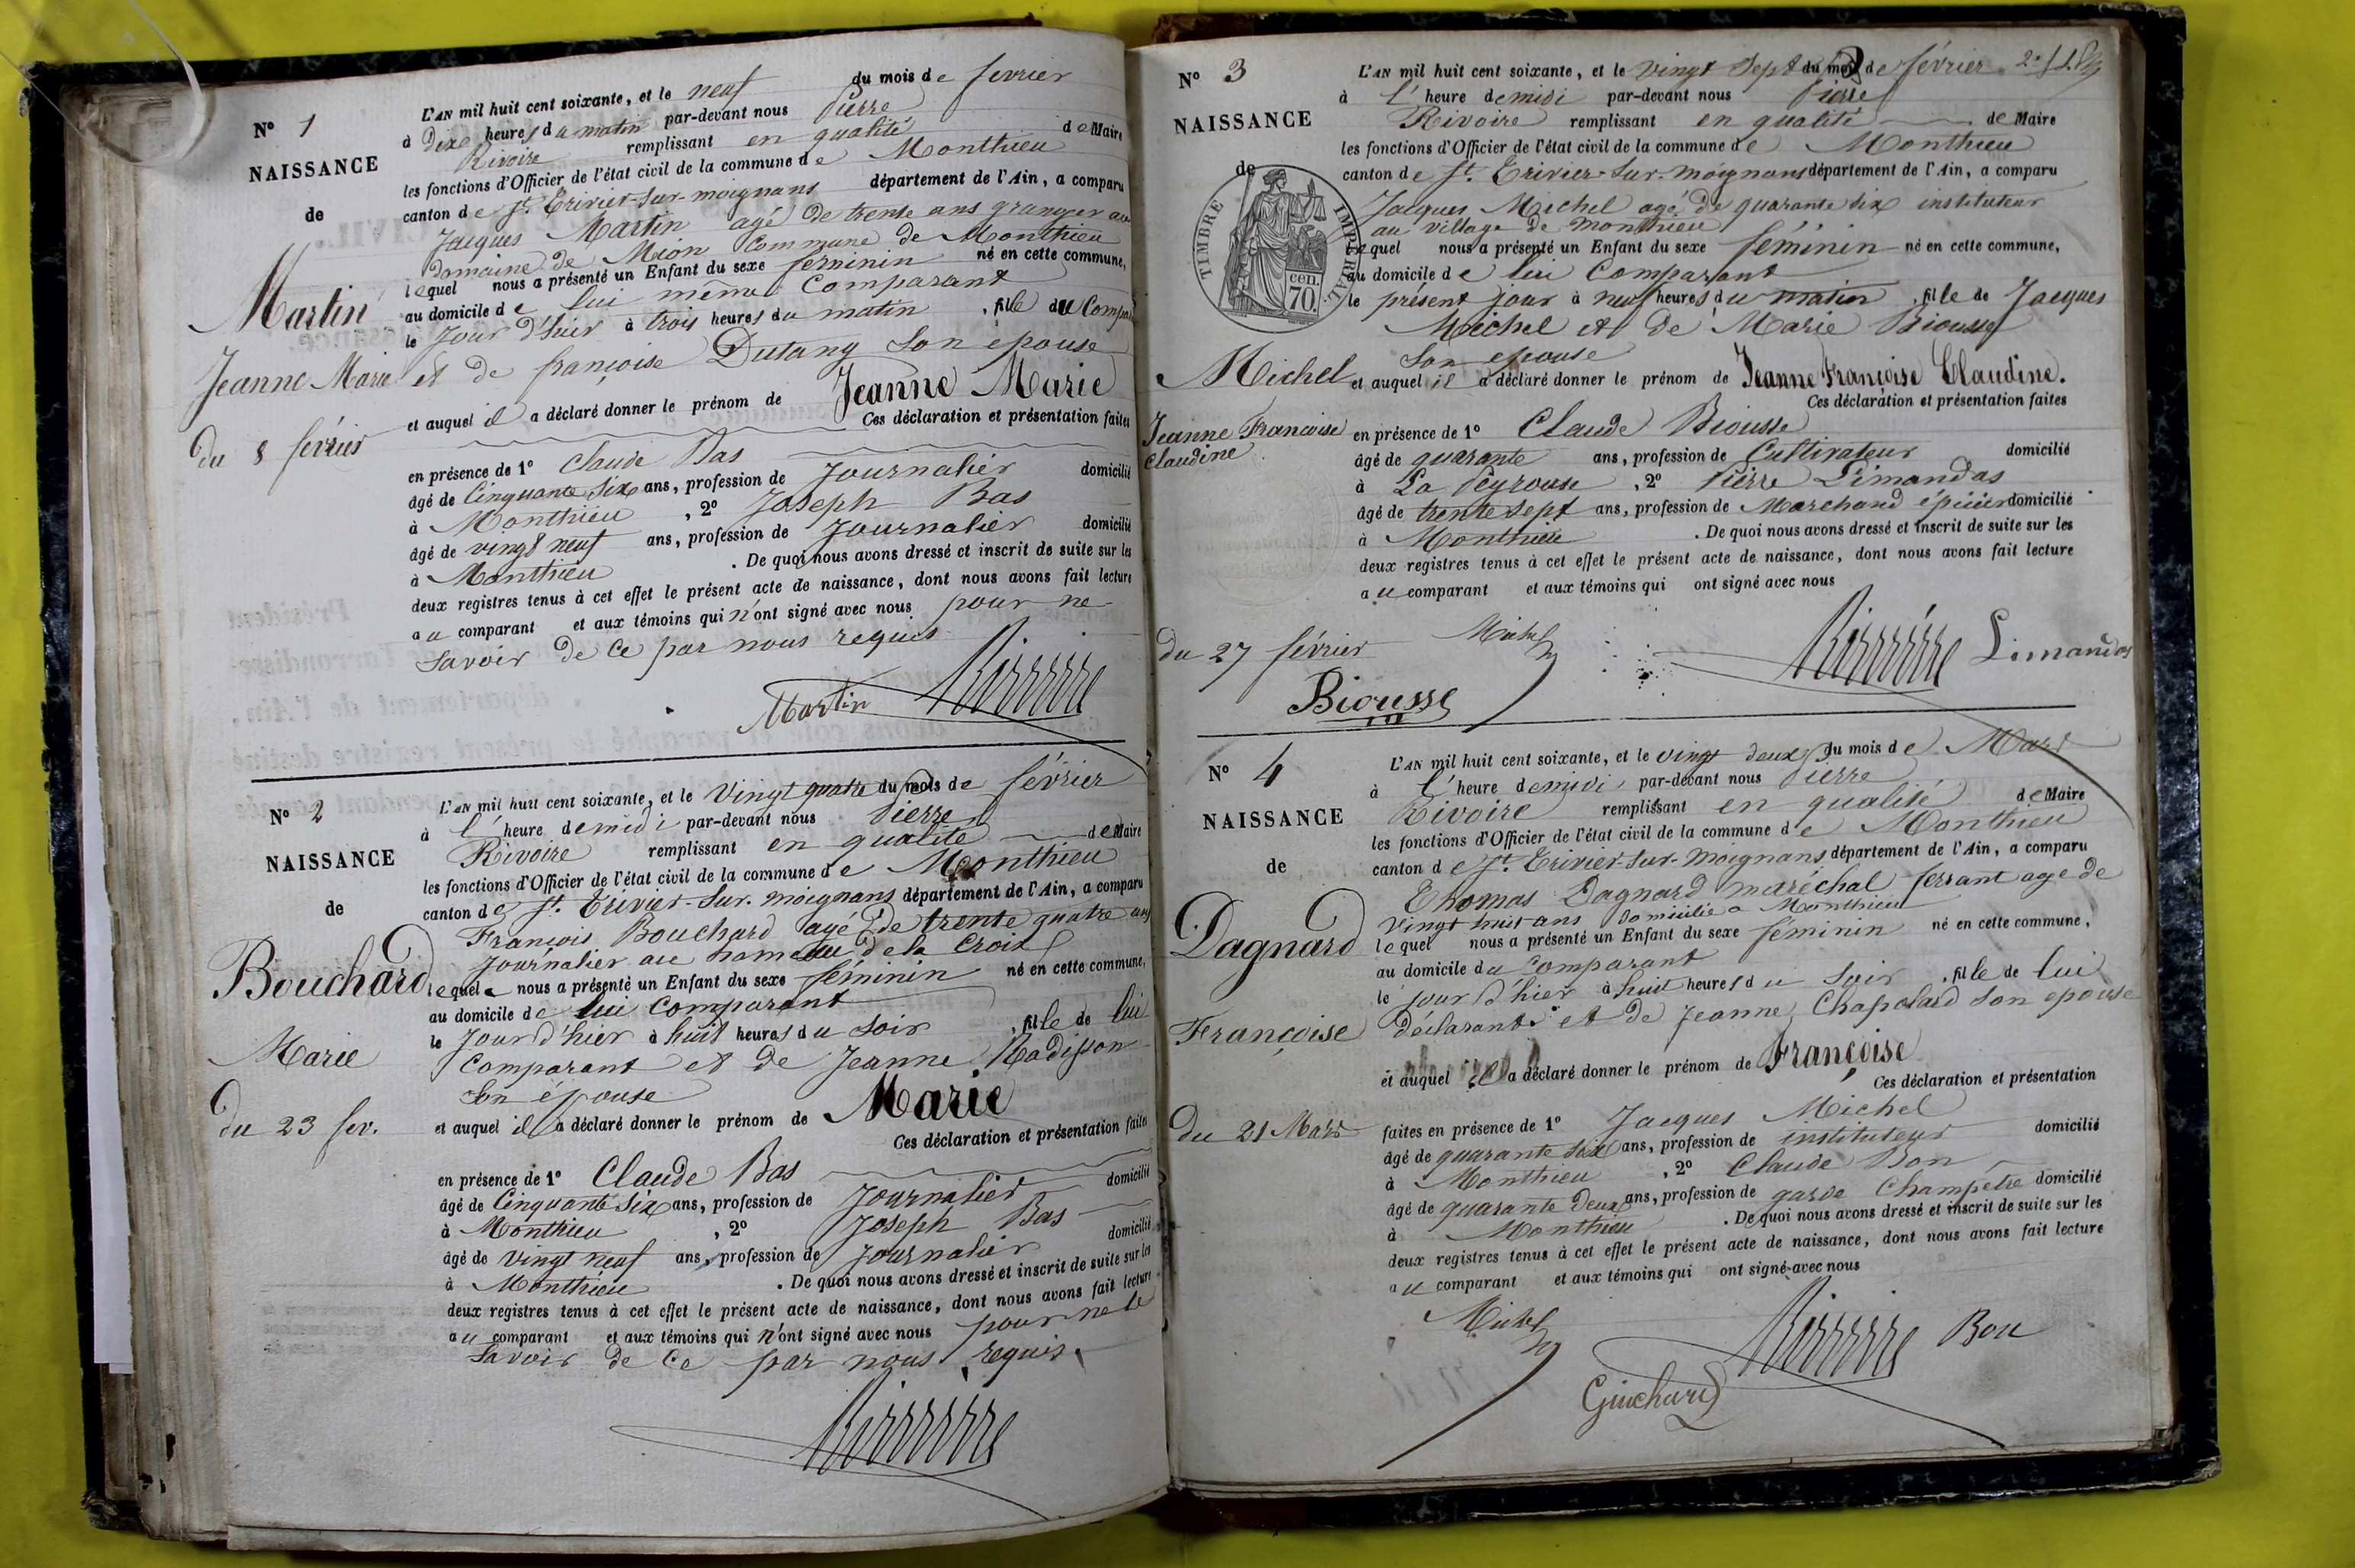 N° 1
NAISSANCE
de
Martin
Jeanne Marie
du 8 février
L'AN mil huit cent soixante, et le neuf du mois de fevrier
à Dix heures du matin par-devant nous Pierre
Rivoire remplissant en qualité de Maire
les fonctions d'Officier de l'état civil de la commune de Monthieu
canton de St. Trivier-sur-moignans département de l'Ain, a comparu
Jacques Martin agé de trente ans granger au
domaine de Mion Commune de Monthieu
lequel nous a présenté un Enfant du sexe feminin né en cette commune,
au domicile de lui même Comparant
le Jour d'hier à trois heures du matin , fille du
et de françoise Dutang Son épouse
et auquel il a déclaré donner le prénom de Jeanne Marie
Ces déclaration et présentation faites
en présence de 1° Claude Bas
âgé de Cinquante Six ans, profession de Journalier domicilié
à Monthieu , 2° Joseph Bas
âgé de vingt neuf ans, profession de Journalier domicilié
à Monthieu . De quoi nous avons dressé et inscrit de suite sur les
deux registres tenus à cet effet le présent acte de naissance, dont nous avons fait lecture
au comparant et aux témoins qui n'ont signé avec nous pour ne
Savoir de Ce par nous requis
Martin Rivoire
N° 2
NAISSANCE
de
Bouchard
Marie
du 23 fev.
L'AN mil huit cent soixante, et le Vingt quatre du mois de février
à l'heure de midi par-devant nous Pierre
Rivoire remplissant en qualité de Maire
les fonctions d'Officier de l'état civil de la commune de Monthieu
canton de St. Trivier-Sur-moignans département de l'Ain, a comparu
François Bouchard agé de trente quatre ans
Journalier au hameau de la Croix
lequel nous a présenté un Enfant du sexe féminin né en cette commune,
au domicile de lui Comparant
le Jour d'hier à huit heures du Soir , fille de lui
Comparant et de Jeanne Radisson
Son épouse
et auquel il a déclaré donner le prénom de Marie
Ces déclaration et présentation faites
en présence de 1° Claude Bas
âgé de Cinquante Six ans, profession de Journalier domicilié
à Monthieu , 2° Joseph Bas
âgé de vingt neuf ans, profession de Journalier domicilié
à Monthieu . De quoi nous avons dressé et inscrit de suite sur les
deux registres tenus à cet effet le présent acte de naissance, dont nous avons fait lecture
au comparant et aux témoins qui n'ont signé avec nous pour ne le
Savoir de Ce par nous requis
Rivoire
N° 3
NAISSANCE
de
TIMBRE IMPÉRIAL
70 cen.
Michel
Jeanne Françoise
Claudine
du 27 février
L'AN mil huit cent soixante, et le vingt Sept du mois de février
à l'heure de midi par-devant nous Pierre
Rivoire remplissant en qualité de Maire
les fonctions d'Officier de l'état civil de la commune de Monthieu
canton de St. Trivier-Sur-moignans département de l'Ain, a comparu
Jacques Michel agé de quarante six instituteur
au village de Monthieu
lequel nous a présenté un Enfant du sexe féminin né en cette commune,
au domicile de lui Comparant
le présent jour à neuf heures du matin , fille de Jacques
Michel et de Marie Biousse
Son épouse
et auquel il a déclaré donner le prénom de Jeanne Françoise Claudine.
Ces déclaration et présentation faites
en présence de 1° Claude Biousse
âgé de quarante ans, profession de Cultivateur domicilié
à La Peyrouse , 2° Pierre Limandas
âgé de trente sept ans, profession de Marchand épicier domicilié
à Monthieu . De quoi nous avons dressé et inscrit de suite sur les
deux registres tenus à cet effet le présent acte de naissance, dont nous avons fait lecture
au comparant et aux témoins qui ont signé avec nous
Michel Rivoire Limandas
Biousse
N° 4
NAISSANCE
de
Dagnard
Françoise
Du 21 Mars
L'AN mil huit cent soixante, et le vingt deux du mois de Mars
à l'heure de midi par-devant nous Pierre
Rivoire remplissant en qualité de Maire
les fonctions d'Officier de l'état civil de la commune de Monthieu
canton de St. Trivier-Sur-Moignans département de l'Ain, a comparu
Thomas Dagnard maréchal ferrant agé de
Vingt huit ans Domicilié a Monthieu
lequel nous a présenté un Enfant du sexe féminin né en cette commune,
au domicile du Comparant
le jour d'hier à huit heures du Soir , fille de lui
déclarant et de Jeanne Chapolard Son epouse
et auquel il a déclaré donner le prénom de Françoise
Ces déclaration et présentation
faites en présence de 1° Jacques Michel
âgé de quarante Six ans, profession de instituteur domicilié
à Monthieu , 2° Claude Bon
âgé de quarante Deux ans, profession de garde Champêtre domicilié
à Monthieu . De quoi nous avons dressé et inscrit de suite sur les
deux registres tenus à cet effet le présent acte de naissance, dont nous avons fait lecture
au comparant et aux témoins qui ont signé avec nous
Michel Rivoire Bon
Guichard